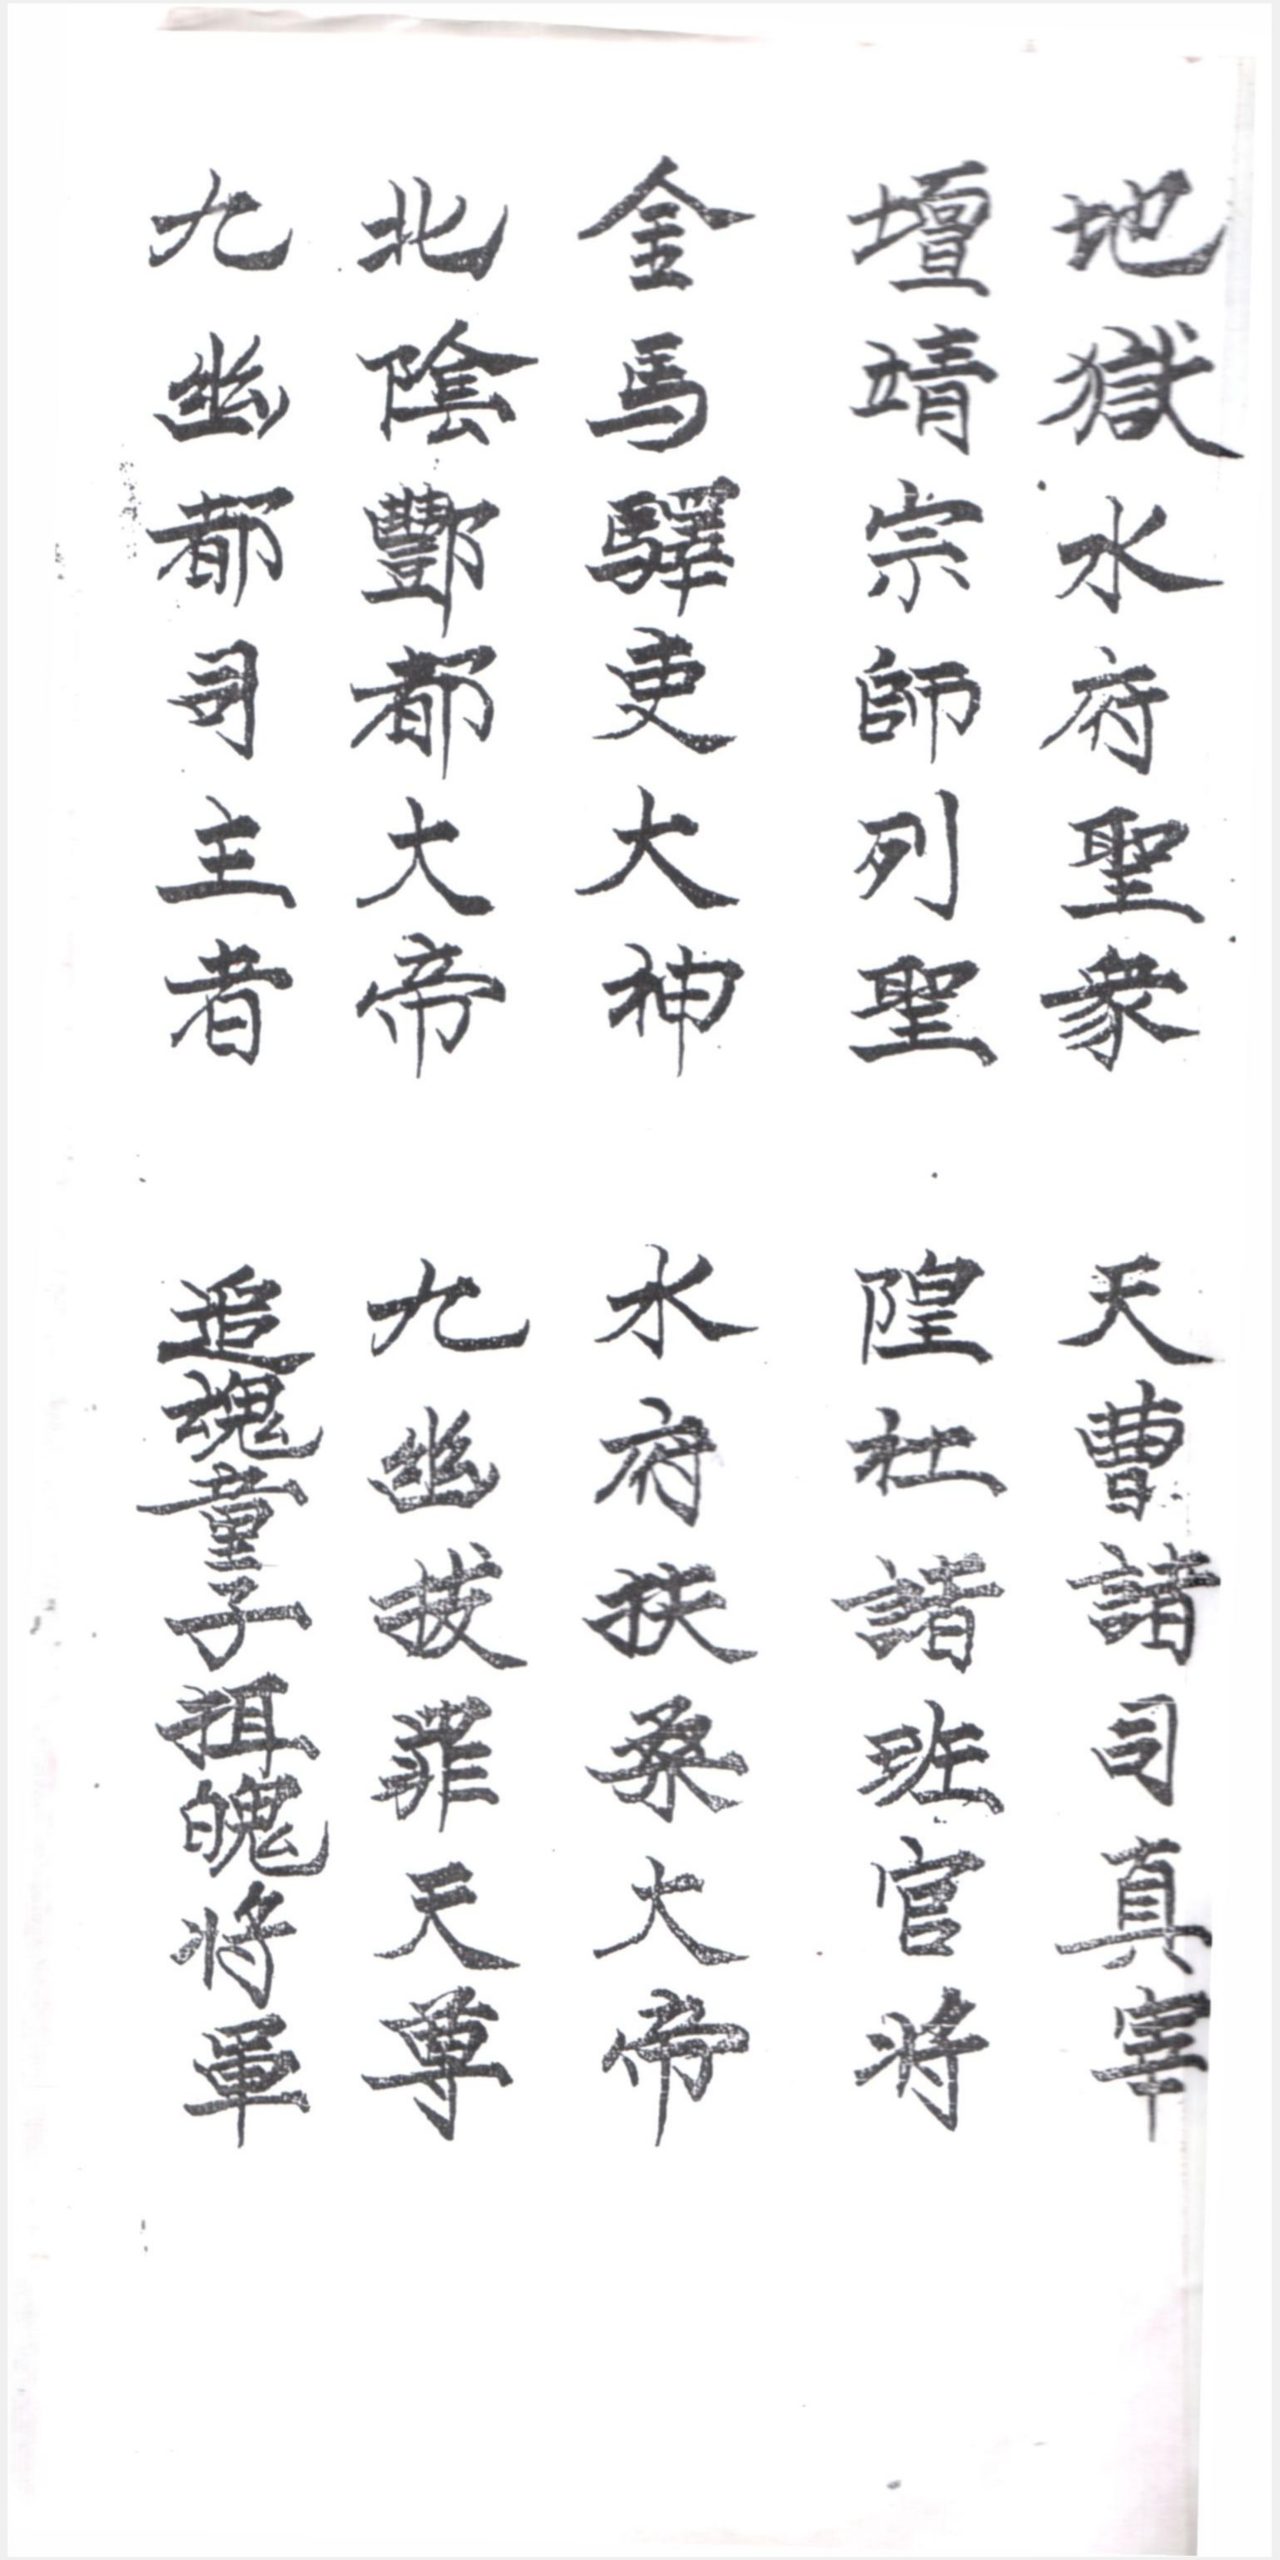 地獄水府聖衆 天曹諸司真宰
壇靖宗師列聖 隍社諸班官將
金馬驛吏大神 水府扶桑大帝
北陰酆都大帝 九幽拔罪天尊
九幽都司主者 追魂童子抯魄將軍